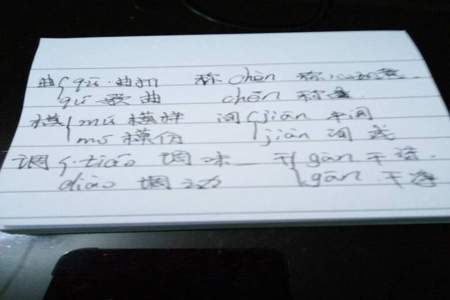 曲 qū 曲折 称 chèn 称心如意
qǔ 歌曲 chēn 称
模 mú 模样 间 jiān 中间
mó 模仿 jiàn 间
调 tiáo 调味 干 gàn 干活
diào 调动 gān 干净